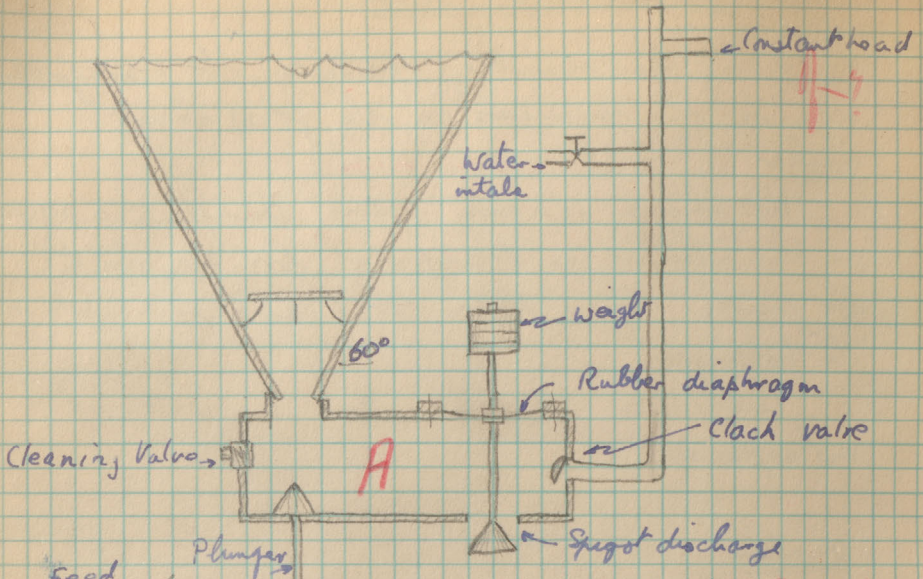 Constant head
Water
intake
weight
60°
Rubber diaphragm
Clach valve
Cleaning Valve
A
Spigot discharge
Plunger
Feed